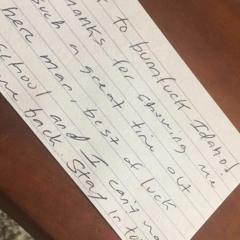 to bumfuck Idaho!
Thanks for showing me
such a great time out
here man, best of luck
school and I can't
me back. Stay in to